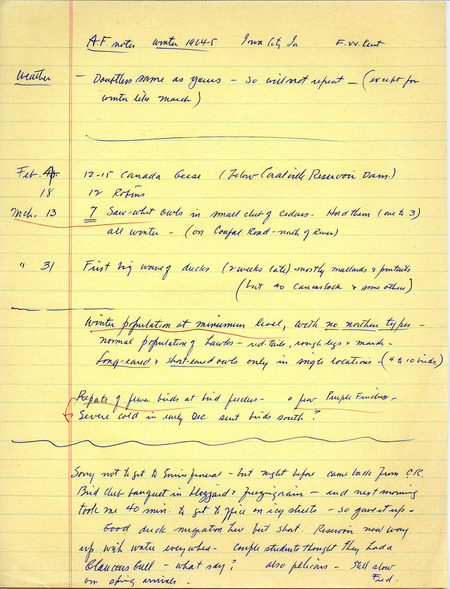 A F notes winter 1964-5 Iowa City, Ia F. W. Kent
Weather — Doubtless same as yours — so will not repeat — (except for
winter like March)
Feb. 12-15 Canada Geese (below Coralville Reservoir Dam.)
18 12 Robins
Mch. 13 7 Saw-whet Owls in small clump of Cedars - Had them (one to 3)
all winter - (on Conn Road - north of River)
" 31 First big wave of ducks (2 weeks late) - mostly mallards & pintails
(but 40 canvasback & some others)
Winter population at minimum level, with no northern types -
normal population of Hawks - red-tails, rough legs & marsh -
Long-eared & short-eared owls only in single locations - (4 to 10 birds)
Reports of fewer birds at bird feeders - a few Purple Finches -
Severe cold in early Dec. sent birds south?
Sorry not to get to funeral - but night before came back from C.R.
Bird club banquet in blizzard & freezing rain - and next morning
took me 40 min. to get to office on icy streets - so gave it up -
Good duck migration here but short. Reservoir now way
up with water everywhere - couple students thought they had a
Glaucous Gull - what say? also pelicans - still slow
on spring arrivals - Fred.